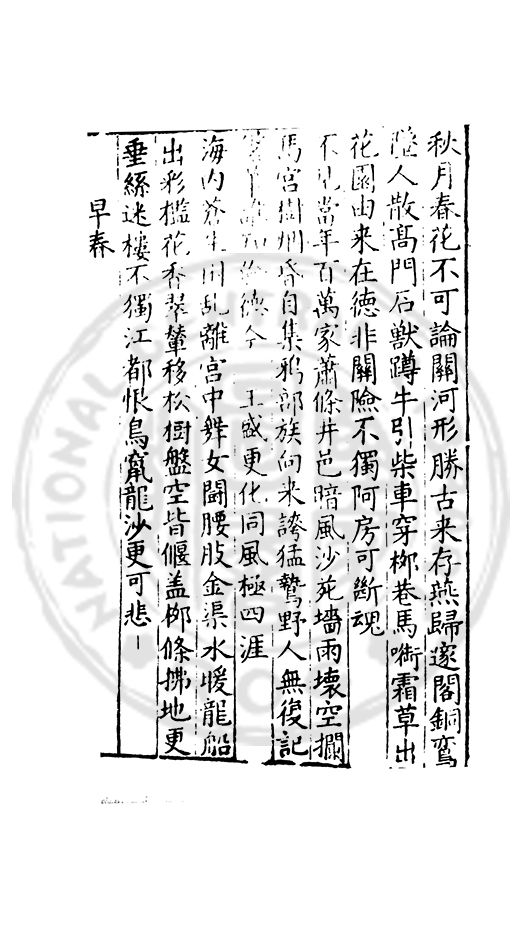 秋月春花不可論關河形勝古来存燕歸邃閣銅鸞
陸人散髙門石獸蹲牛引柴車穿柳巷馬㗸霜草出
花園由来在徳非關險不獨阿房可斷魂
不見當年百萬家蕭條井邑暗風沙苑墻雨壊空攔
馬宫樹烟昏自集鴉部族向来誇猛鷙野人無復記
徳今 王盛更化同風極四涯
海内蒼生困乱離宫中舞女鬪腰肢金渠水暖龍船
出彩檻花香翠輦移松樹盤空皆偃盖柳條拂地更
垂絲迷樓不獨江都恨鳥竄龍沙更可悲
早春
NATIONAL CENTRAL LIBRARY